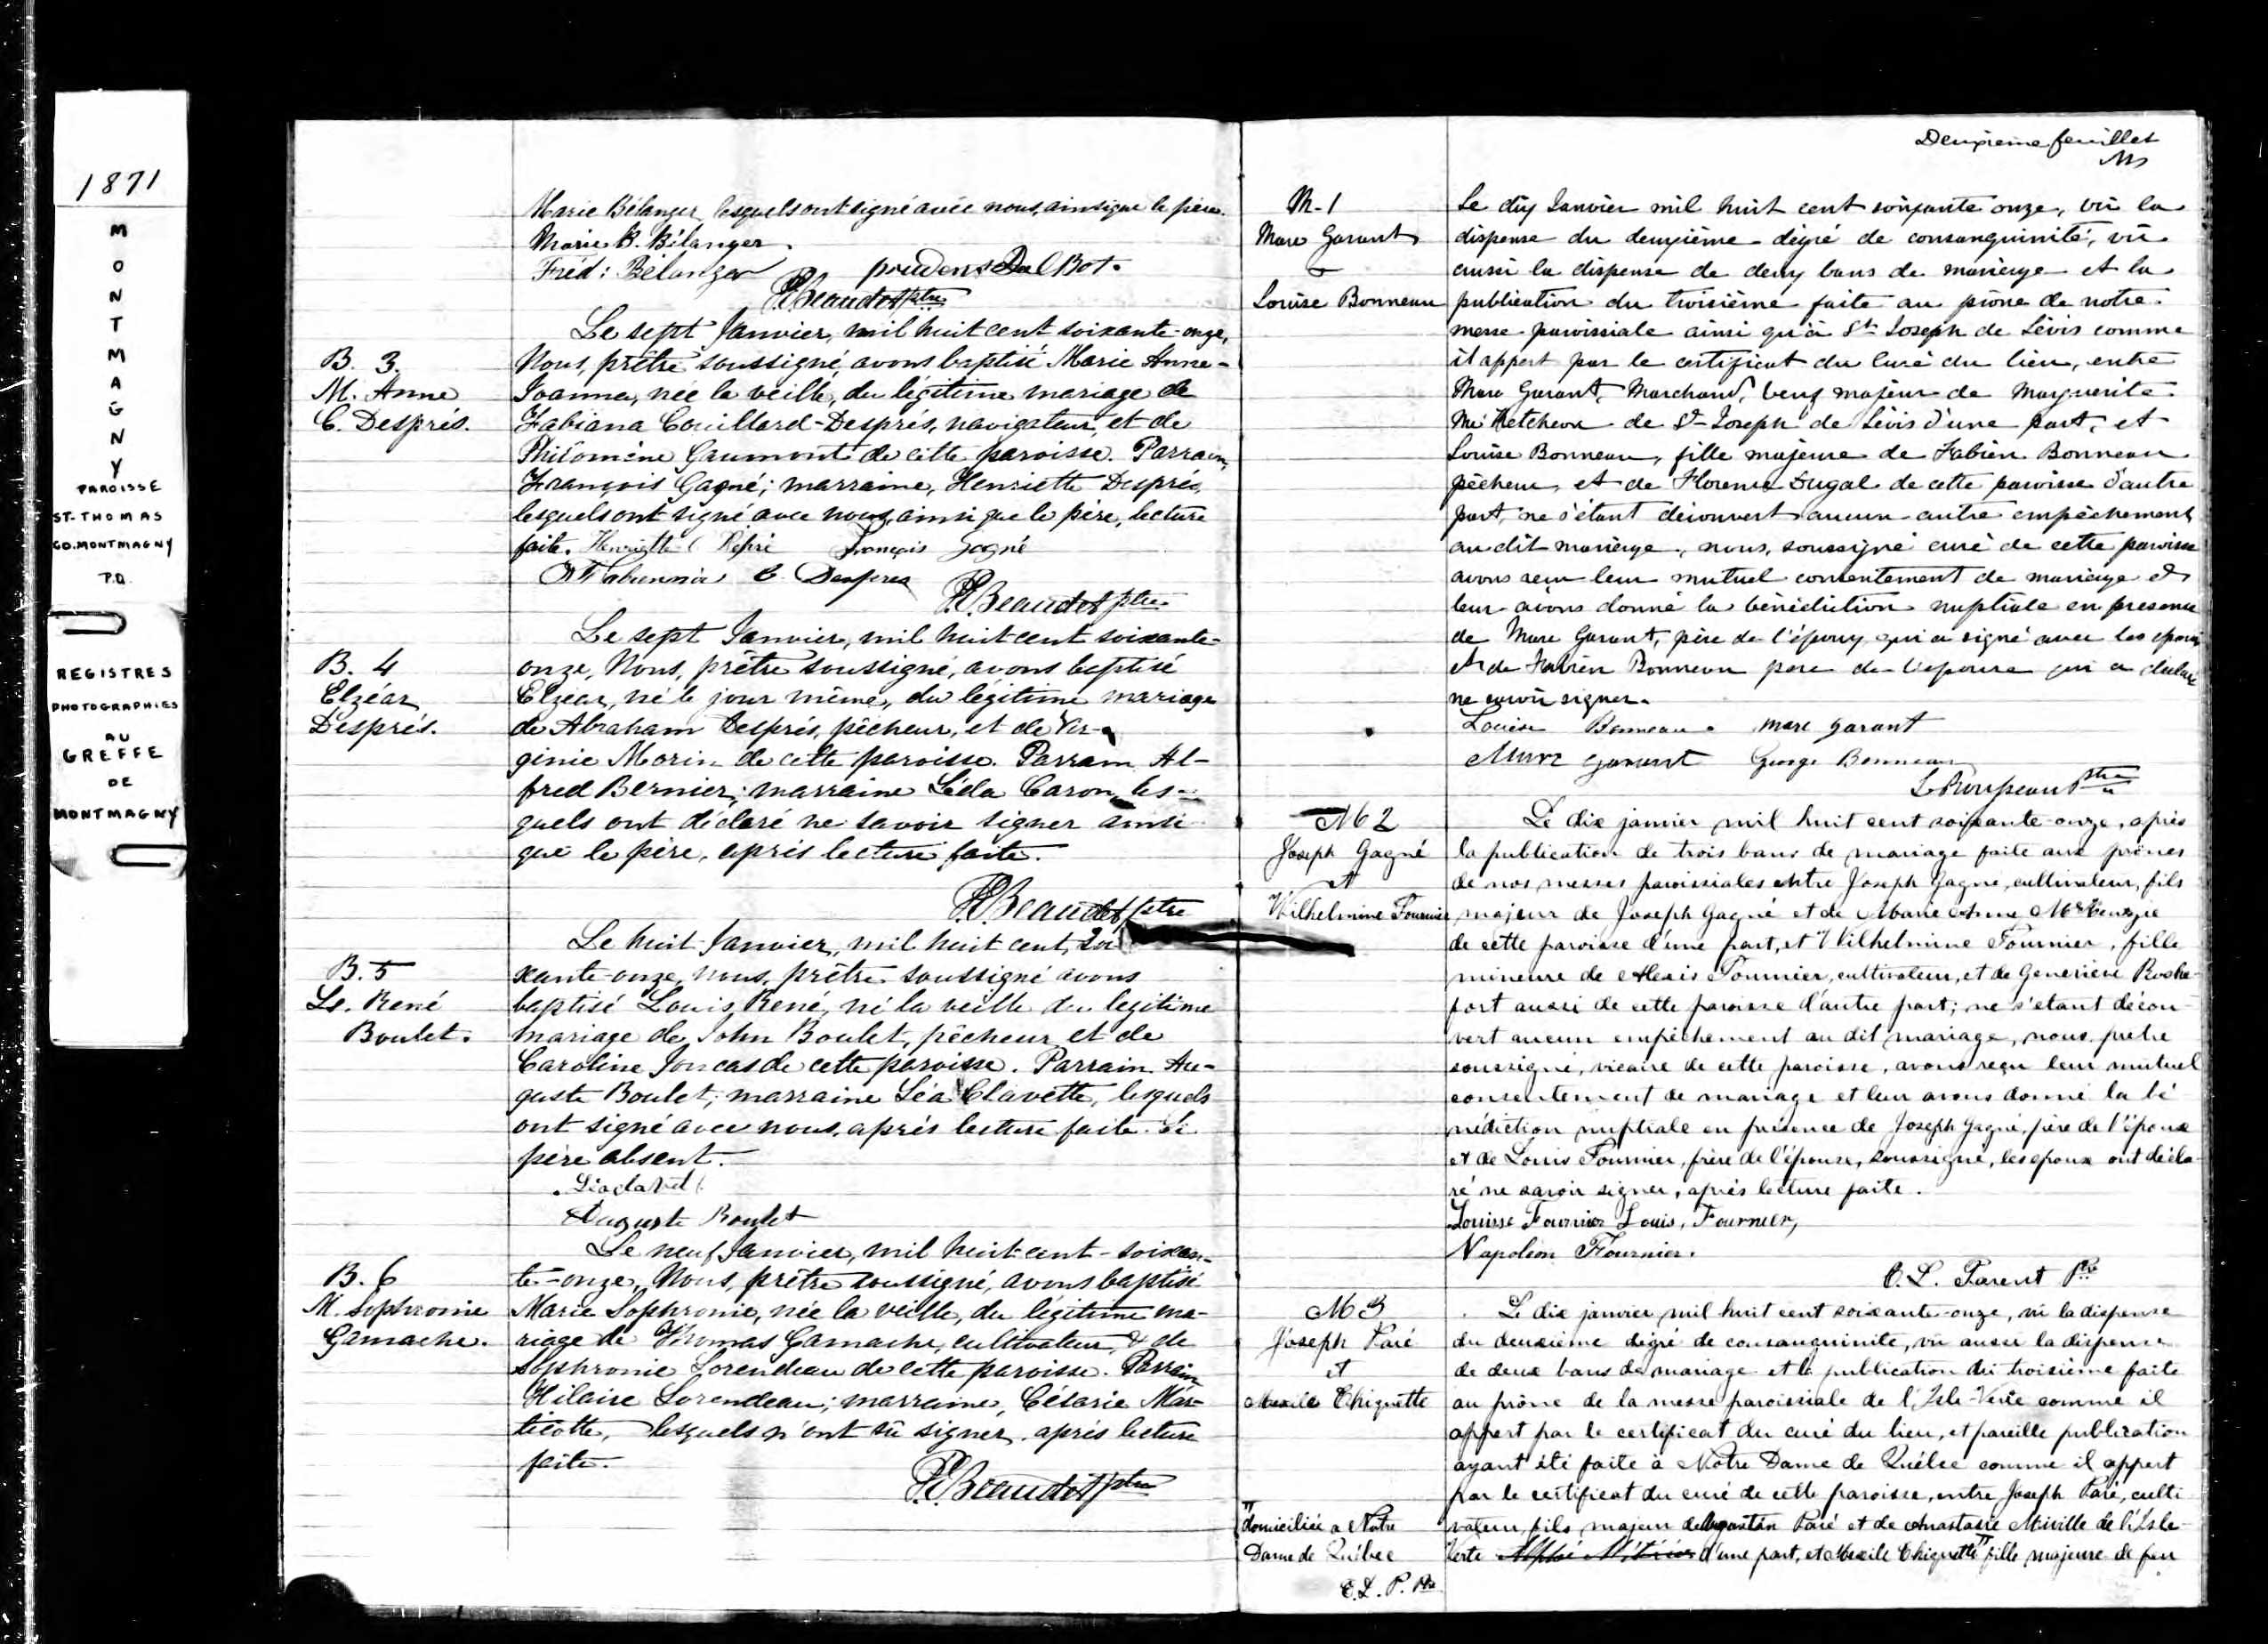 1871
MONTMAGNY
PAROISSE
ST-THOMAS
CO. MONTMAGNY
P.Q.
REGISTRES
PHOTOGRAPHIES
AU
GREFFE
DE
MONTMAGNY
Marie Bélanger lesquels ont signé avec nous, ainsi que le père.
Marie B. Bélanger.
Fréd: Bélanger
Beaudet ptre
Le sept Janvier, mil huit cent soixante-onze,
B. 3.
M. Anne
C. Després.
Nous, prêtre soussigné, avons baptisé Marie Anne-
Joanna, née la veille, du légitime mariage de
Fabiana Couillard-Després, navigateur, et de
Philomène Gaumont de cette paroisse. Parrain,
François Gagné; marraine, Henriette Després,
lesquels ont signé avec nous, ainsi que le père, lecture
faite. Henriette François Gagné
C. Despres
Beaudet ptre
Le sept Janvier, mil huit cent soixante-
B. 4
Elzéar
Després.
onze, Nous, prêtre soussigné, avons baptisé
Elzéar, né le jour même, du légitime mariage
de Abraham Després, pêcheur, et de Vir-
ginie Morin de cette paroisse. Parrain Al-
fred Bernier; marraine Léda Caron, les-
quels ont déclaré ne savoir signer ainsi
que le père, après lecture faite.
Beaudet ptre
Le huit Janvier, mil huit cent, soi
B. 5
Ls. René
Boulet.
xante-onze, nous, prêtre soussigné avons
baptisé Louis René, né la veille du legitime
mariage de John Boulet, pêcheur et de
Caroline Joncas de cette paroisse. Parrain Au-
guste Boulet; marraine Léa Clavette, lesquels
ont signé avec nous, après lecture faite. Le
père absent.
Auguste Boulet
Le neuf Janvier, mil huit-cent-soixan-
B. 6
M. Sophronie
Gamache.
te-onze, Nous, prêtre soussigné, avons baptisé
Marie Sophronie, née la veille, du légitime ma-
riage de Thomas Gamache, cultivateur, & de
Sophronie Lorendeau de cette paroisse. Parrain
Hilaire Lorendeau; marraine, Célarie Mar-
ticotte, lesquels n'ont sû signer. après lecture
faite.
Beaudet ptre
Deuxième feuillet
M. 1
Marc Garant
&
Louise Bonneau
Le dix Janvier mil huit cent soixante onze, vû la
dispense du deuxième dégré de consanguinité, vû
aussi la dispense de deux bans de mariage et la
publication du troisième faite au prône de notre
messe paroissiale ainsi qu'à St Joseph de Lévis comme
il appert par le certificat du Curé du lieu, entre
Marc Garant, Marchand, veuf majeur de Marguerite
de St-Joseph de Lévis d'une part, et
Louise Bonneau, fille majeure de Fabien Bonneau
pêcheur, et de Florence Dugal de cette paroisse d'autre
part, ne s'étant découvert aucun autre empêchement
au dit mariage, nous, soussigné curé de cette paroisse
avons reçu leur mutuel consentement de mariage et
leur avons donné la bénédiction nuptiale en presence
de Marc Garant, père de l'époux qui a signé avec les epoux
et de Fabien Bonneau pere de l'epouse qui a déclaré
ne savoir signer.
Louise Bonneau. Marc Garant
Marc Garant George Bonneau
Ptre
M 2
Joseph Gagné
et
Wilhelmine Fournier
Le dix janvier mil huit cent soixante-onze, après
la publication de trois bans de mariage faite aux prônes
de nos messes paroissiales entre Joseph Gagné, cultivateur, fils
majeur de Joseph Gagné et de Marie Anne McKenzie
de cette paroisse d'une part, et Wilhelmine Fournier, fille
mineure de Alexis Fournier, cultivateur, et de Geneviève Roche-
fort aussi de cette paroisse d'autre part; ne s'étant décou-
vert aucun empêchement au dit mariage, nous, prêtre
soussigné, vicaire de cette paroisse, avons reçu leur mutuel
consentement de mariage et leur avons donné la bé-
nédiction nuptiale en présence de Joseph Gagné, père de l'époux
et de Louis Fournier, frère de l'épouse, soussigné, les époux ont décla-
ré ne savoir signer, après lecture faite.
Louisse Fournier Louis, Fournier,
Napoléon Fournier.
C. L. Parent Ptre
M 3
Joseph Paré
et
Mexile Chiquette
Le dix janvier mil huit cent soixante-onze, vû la dispense
du deuxième dégré de consanguinité, vû aussi la dispense
de deux bans de mariage et la publication du troisième faite
au prône de la messe paroissiale de l'Isle-Verte comme il
appert par le certificat du curé du lieu, et pareille publication
ayant été faite à Notre Dame de Québec comme il appert
par le certificat du curé de cette paroisse, entre Joseph Paré, culti
vateur, fils majeur de Augustin Paré et de Anastasie Miville de l'Isle-
Verte d'une part, et Mexile Chiquette fille majeure de feu
domiciliée a Notre
Dame de Québec
C. L. P. Ptre